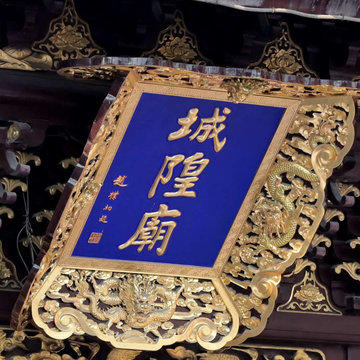 城隍廟
趙樸初題